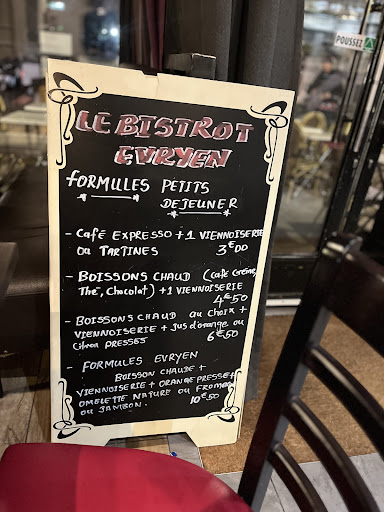 POUSSEZ
LE BISTROT
EVRYEN
FORMULES PETITS
DEJEUNER
- Café EXPRESSO + 1 VIENNOISERIE
OU TARTINES 3€00
- BOISSONS CHAUD (Café Crème,
Thé, Chocolat) + 1 VIENNOISERIE
4€50
- BOISSONS CHAUD au choix +
VIENNOISERIE + Jus d'orange ou
Citron PRESSÉS 6€50
- FORMULES EVRYEN
BOISSON CHAUDE +
VIENNOISERIE + ORANGE PRESSE +
OMELETTE NATURE OU FROMAGE
OU JAMBON. 10€50